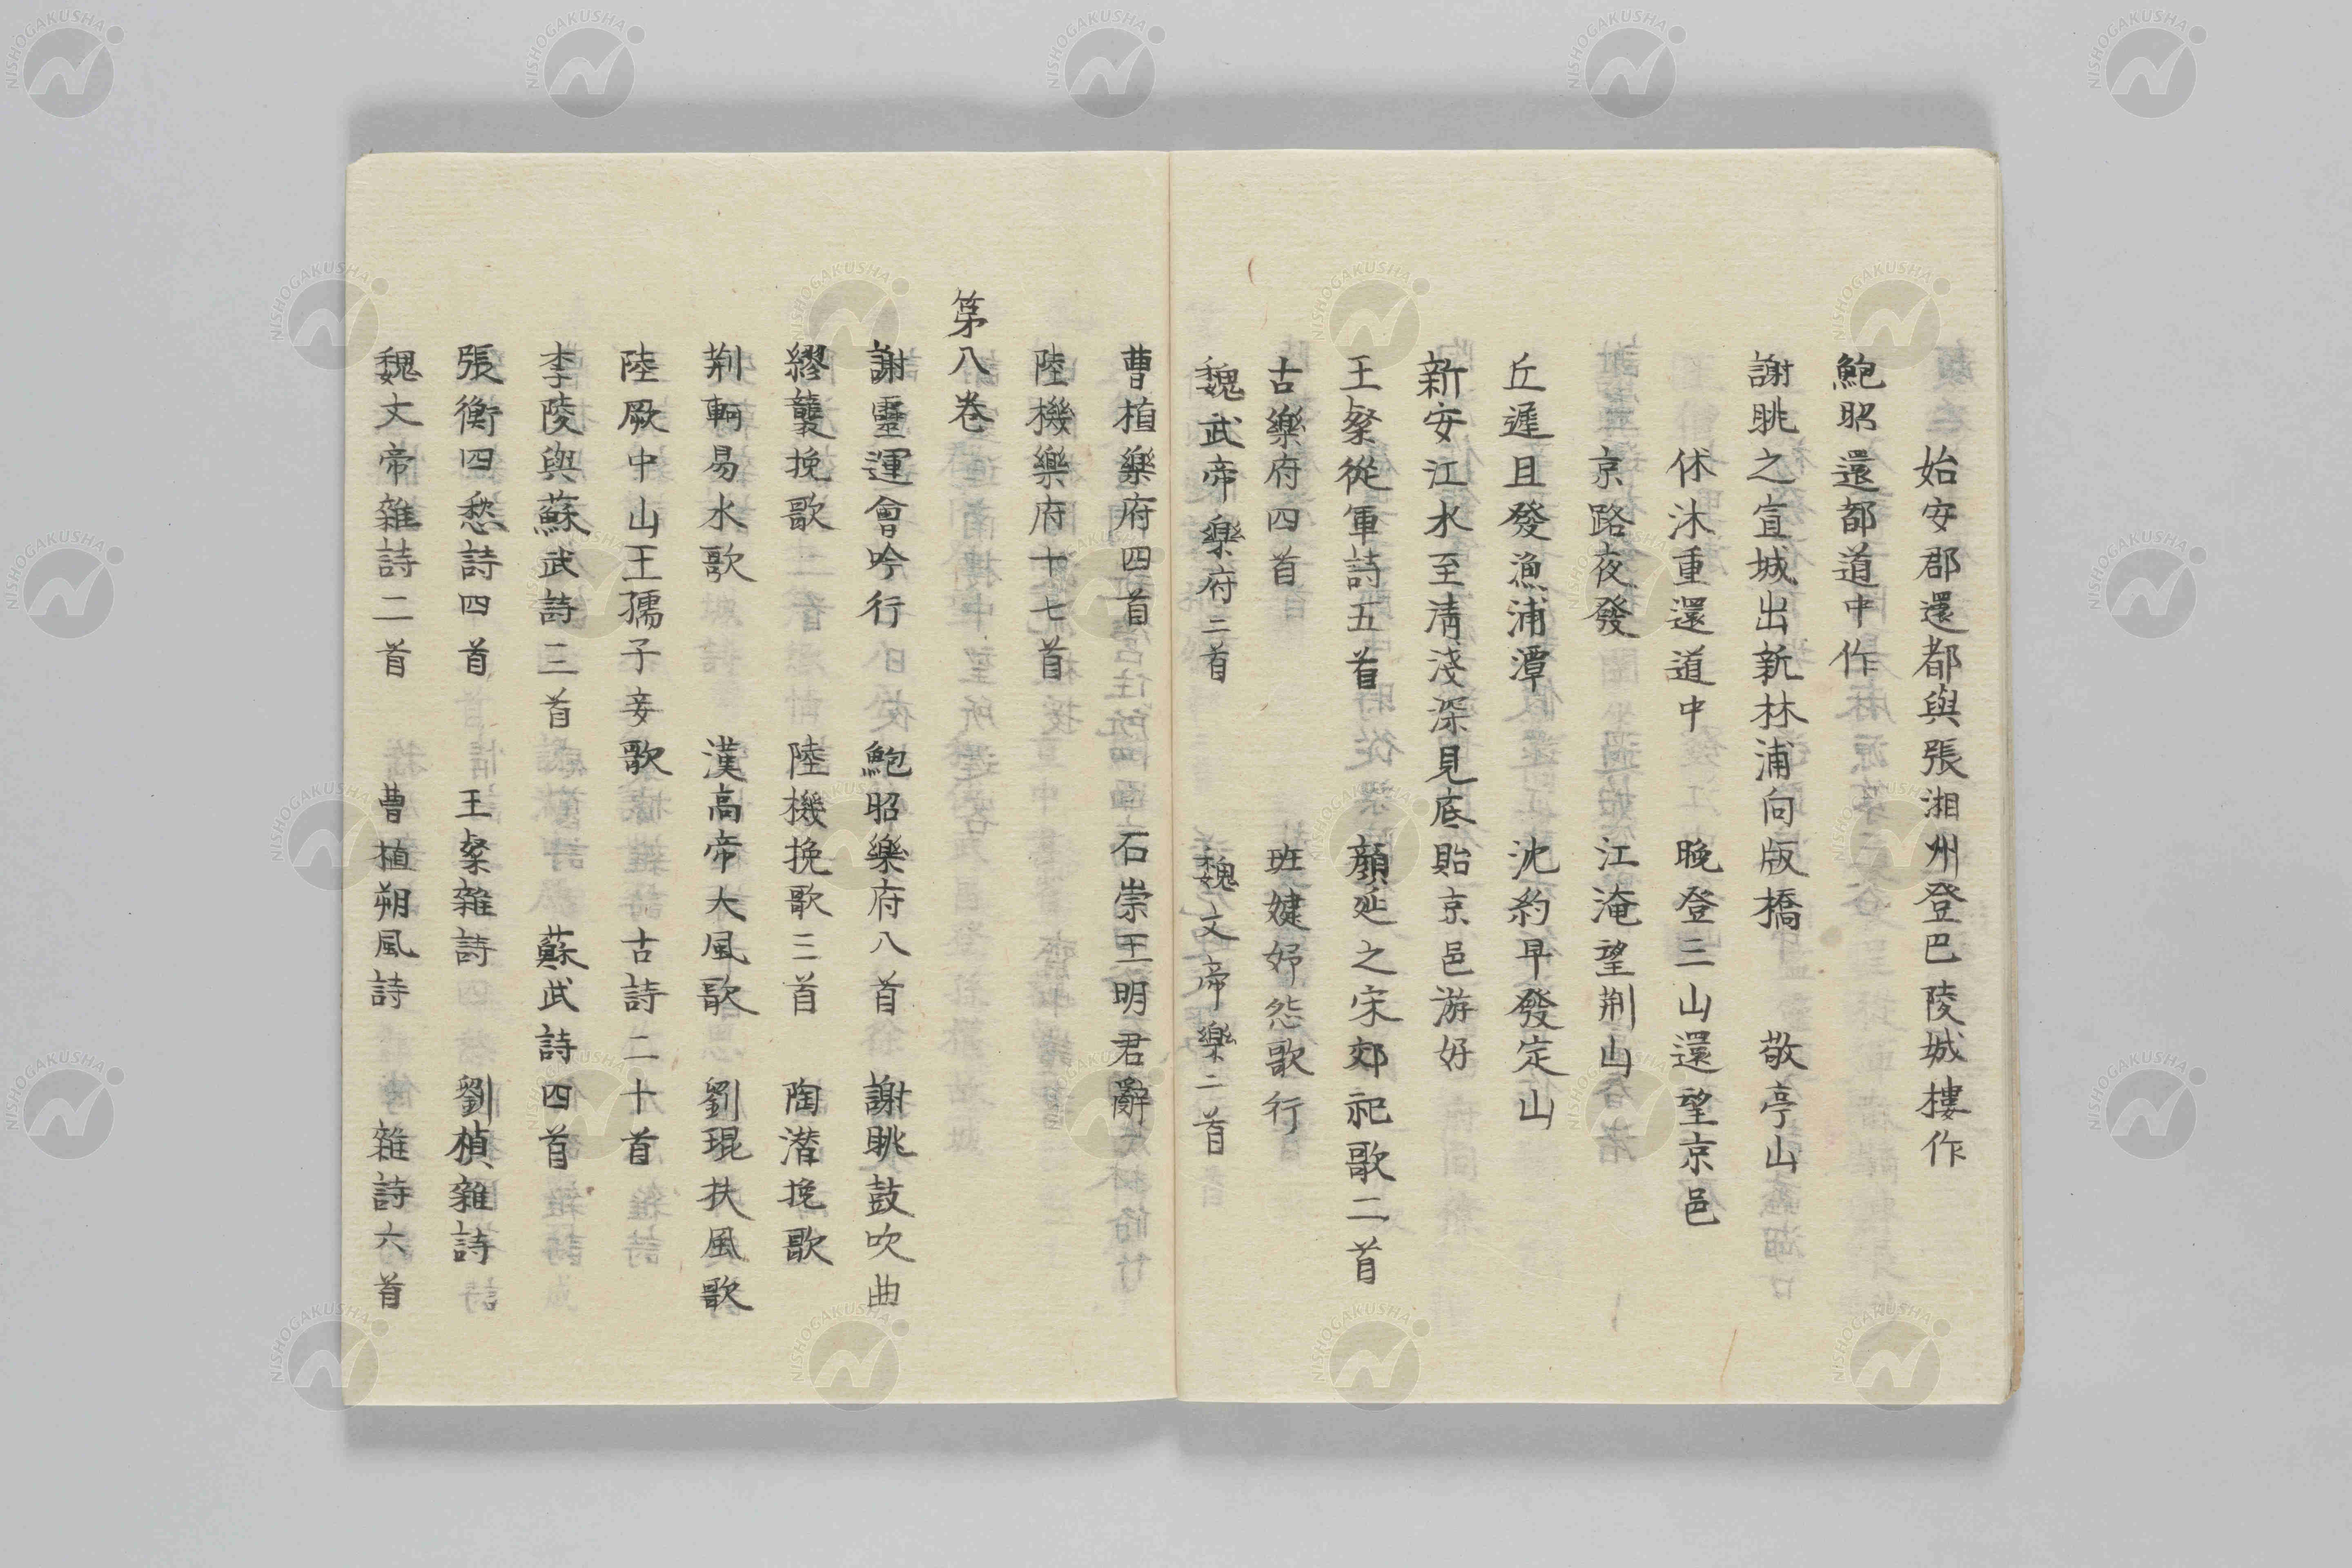 始安郡還都與張湘州登巴陵城樓作
鮑昭還都道中作
謝眺之宣城出新林浦向版橋　敬亭山
休沐重還道中　晚登三山還望京邑
京路夜發　江淹望荆山
丘遲旦發漁浦潭　沈約早發定山
新安江水至淸淺深見底貽京邑游好
王粲從軍詩五首　顏延之宋郊祀歌二首
古樂府四首　班婕妤怨歌行
魏武帝樂府二首　魏文帝樂二首
曹植樂府四首　石崇王明君辭
陸機樂府十七首
第八卷
謝靈運會吟行　鮑昭樂府八首　謝眺鼓吹曲
繆襲挽歌　陸機挽歌三首　陶潜挽歌
荆軻易水歌　漢高帝大風歌　劉琨扶風歌
陸厥中山王孺子妾歌　古詩二十首
李陵與蘇武詩三首　蘇武詩四首
張衡四愁詩四首　王粲雜詩　劉楨雜詩
魏文帝雜詩二首　曹植朔風詩　雜詩六首
NISHOGAKUSHA